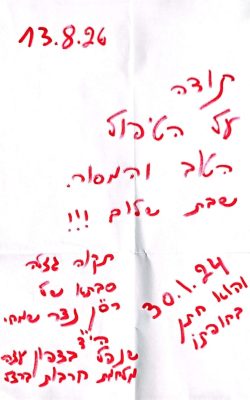 13.8.26
תודה
על הטיפול
הטוב והמסור.
שבת שלום !!!
תקוה גזלה
סבתא של
רס"ן נצר שמחי
הי"ד
שנפל בצפון עזה
מלחמת חרבות ברזל
30.1.24
והוא חתן
בחופתו